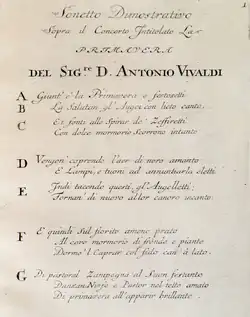 Sonetto Dimostrativo
Sopra il Concerto Intitolato La
PRIMAVERA
DEL SIG.re D. ANTONIO VIVALDI
A Giunt' è la Primavera e festosetti
B La Salutan gl' Augei con lieto canto,
C E i fonti allo Spirar de' Zeffiretti
Con dolce mormorio Scorrono intanto
D Vengon' coprendo l' aer di nero amanto
E Lampi, e tuoni ad annuntiarla eletti
E Indi tacendo questi, gl' Augelletti;
Tornan' di nuovo al lor canoro incanto:
F E quindi sul fiorito ameno prato
Al caro mormorio di fronde e piante
Dorme 'l Caprar col fido can' à lato.
G Di pastoral Zampogna al Suon festante
Danzan Ninfe e Pastor nel tetto amato
Di primavera all' apparir brillante.